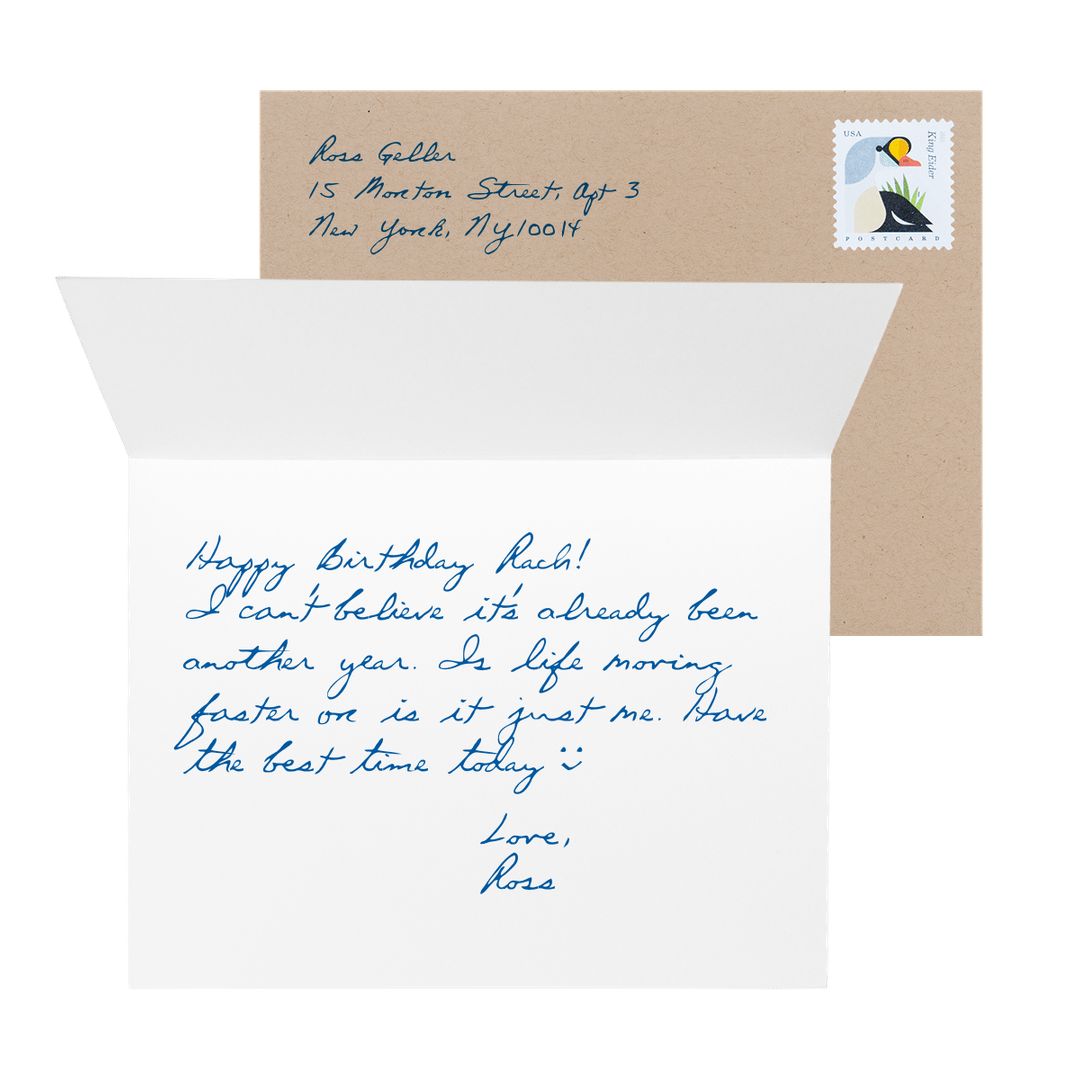 Ross Geller
15 Morton Street, Apt 3
New York, NY10014
USA
King Eider
POSTCARD
Happy Birthday Rach!
I can't believe it's already been
another year. Is life moving
faster or is it just me. Have
the best time today :)
Love,
Ross